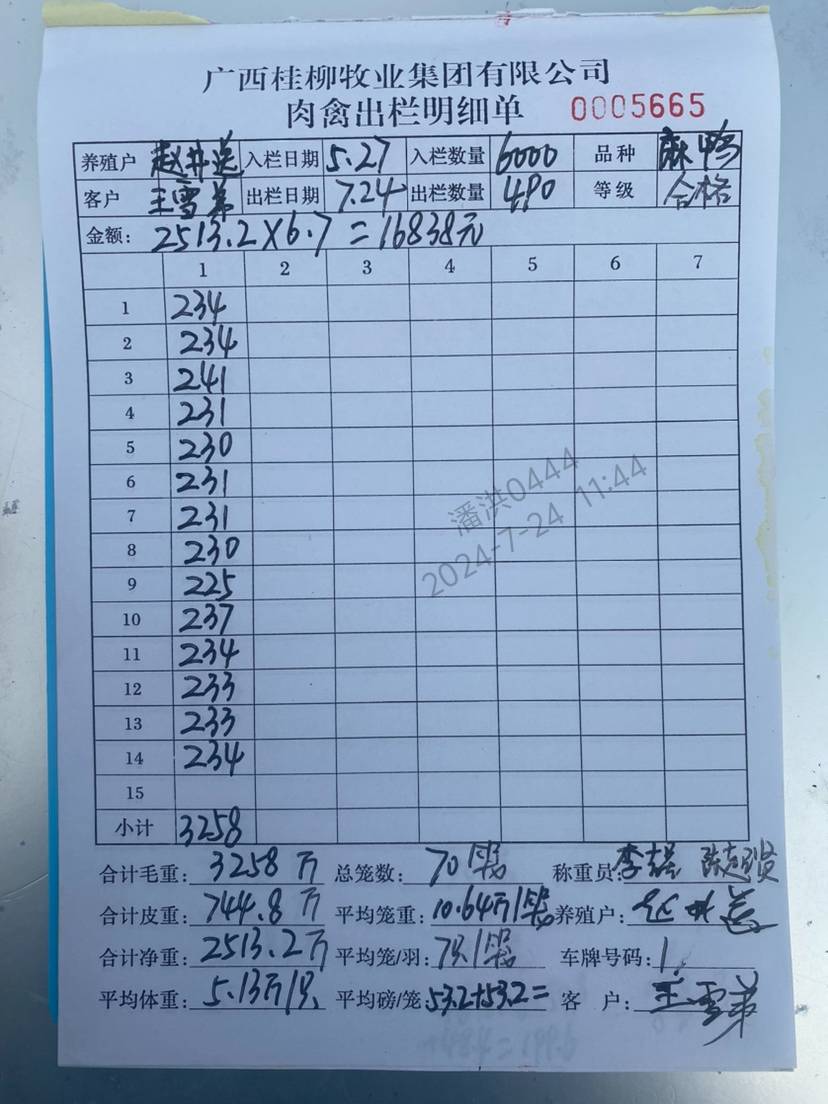 广西桂柳牧业集团有限公司
肉禽出栏明细单 0005665
养殖户 入栏日期 5.27 入栏数量 6000 品种 麻鸭
客户 王雪弟 出栏日期 7.24 出栏数量 490 等级 合格
金额: 2513.2×6.7=16838元
1 2 3 4 5 6 7
1 234
2 234
3 241
4 231
5 230
6 231
7 231
8 230
9 225
10 237
11 234
12 233
13 233
14 234
15
小计 3258
合计毛重: 3258斤 总笼数: 70 称重员:
合计皮重: 744.8斤 平均笼重: 10.64斤/ 养殖户:
合计净重: 2513.2斤 平均笼/羽: 7只/ 车牌号码: 1.
平均体重: 5.13斤/只 平均磅/笼 53.2+53.2= 客户: 王雪弟
潘洪0444
2024-7-24 11:44